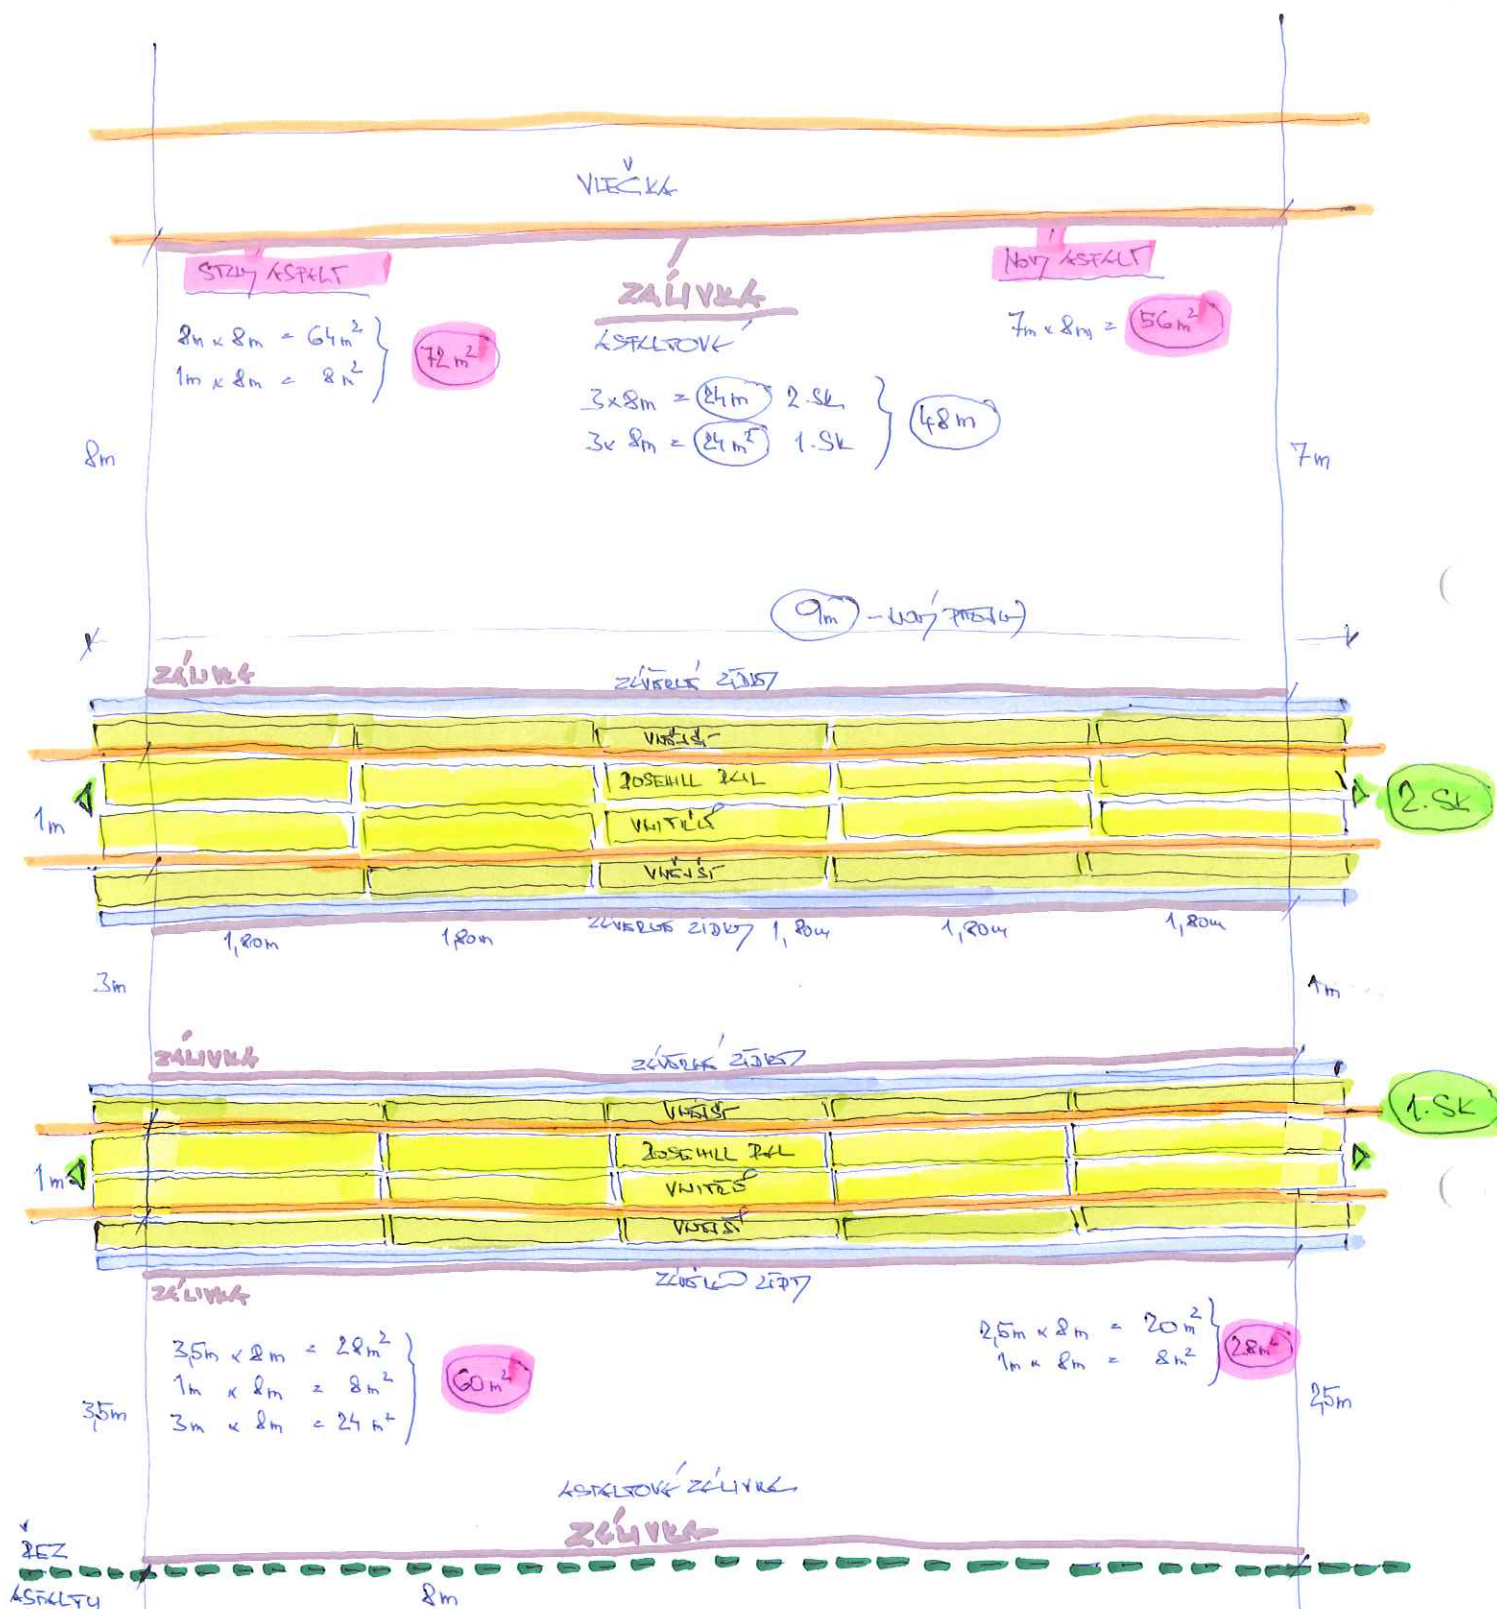 VLEČKA
STARÝ ASFALT
NOVÝ ASFALT
ZÁLIVKA
ASFALTOVÁ
8m x 8m = 64m²
1m x 8m = 8m²
72m²
7m x 8m = 56m²
3x8m = 24m 2.SK
3x 8m = 24m² 1.SK
48m
8m
7m
9m - NOVÝ
ZÁLIVKA
ZÁVĚRNÉ ZÍDKY
VNĚJŠÍ
ROSEHILL RAIL
VNITŘNÍ
VNĚJŠÍ
1m
2.SK
ZÁVĚRNÉ ZÍDKY
1,80m
1,80m
1,80m
1,80m
1,80m
3m
1m
ZÁLIVKA
ZÁVĚRNÉ ZÍDKY
VNĚJŠÍ
ROSEHILL RAIL
VNITŘNÍ
VNĚJŠÍ
1m
1.SK
ZÁLIVKA
ZÁVĚRNÉ ZÍDKY
3,5m x 8m = 28m²
1m x 8m = 8m²
3m x 8m = 24m²
60m²
2,5m x 8m = 20m²
1m x 8m = 8m²
28m²
3,5m
2,5m
ASFALTOVÁ ZÁLIVKA
ZÁLIVKA
ŘEZ
ASFALTU
8m